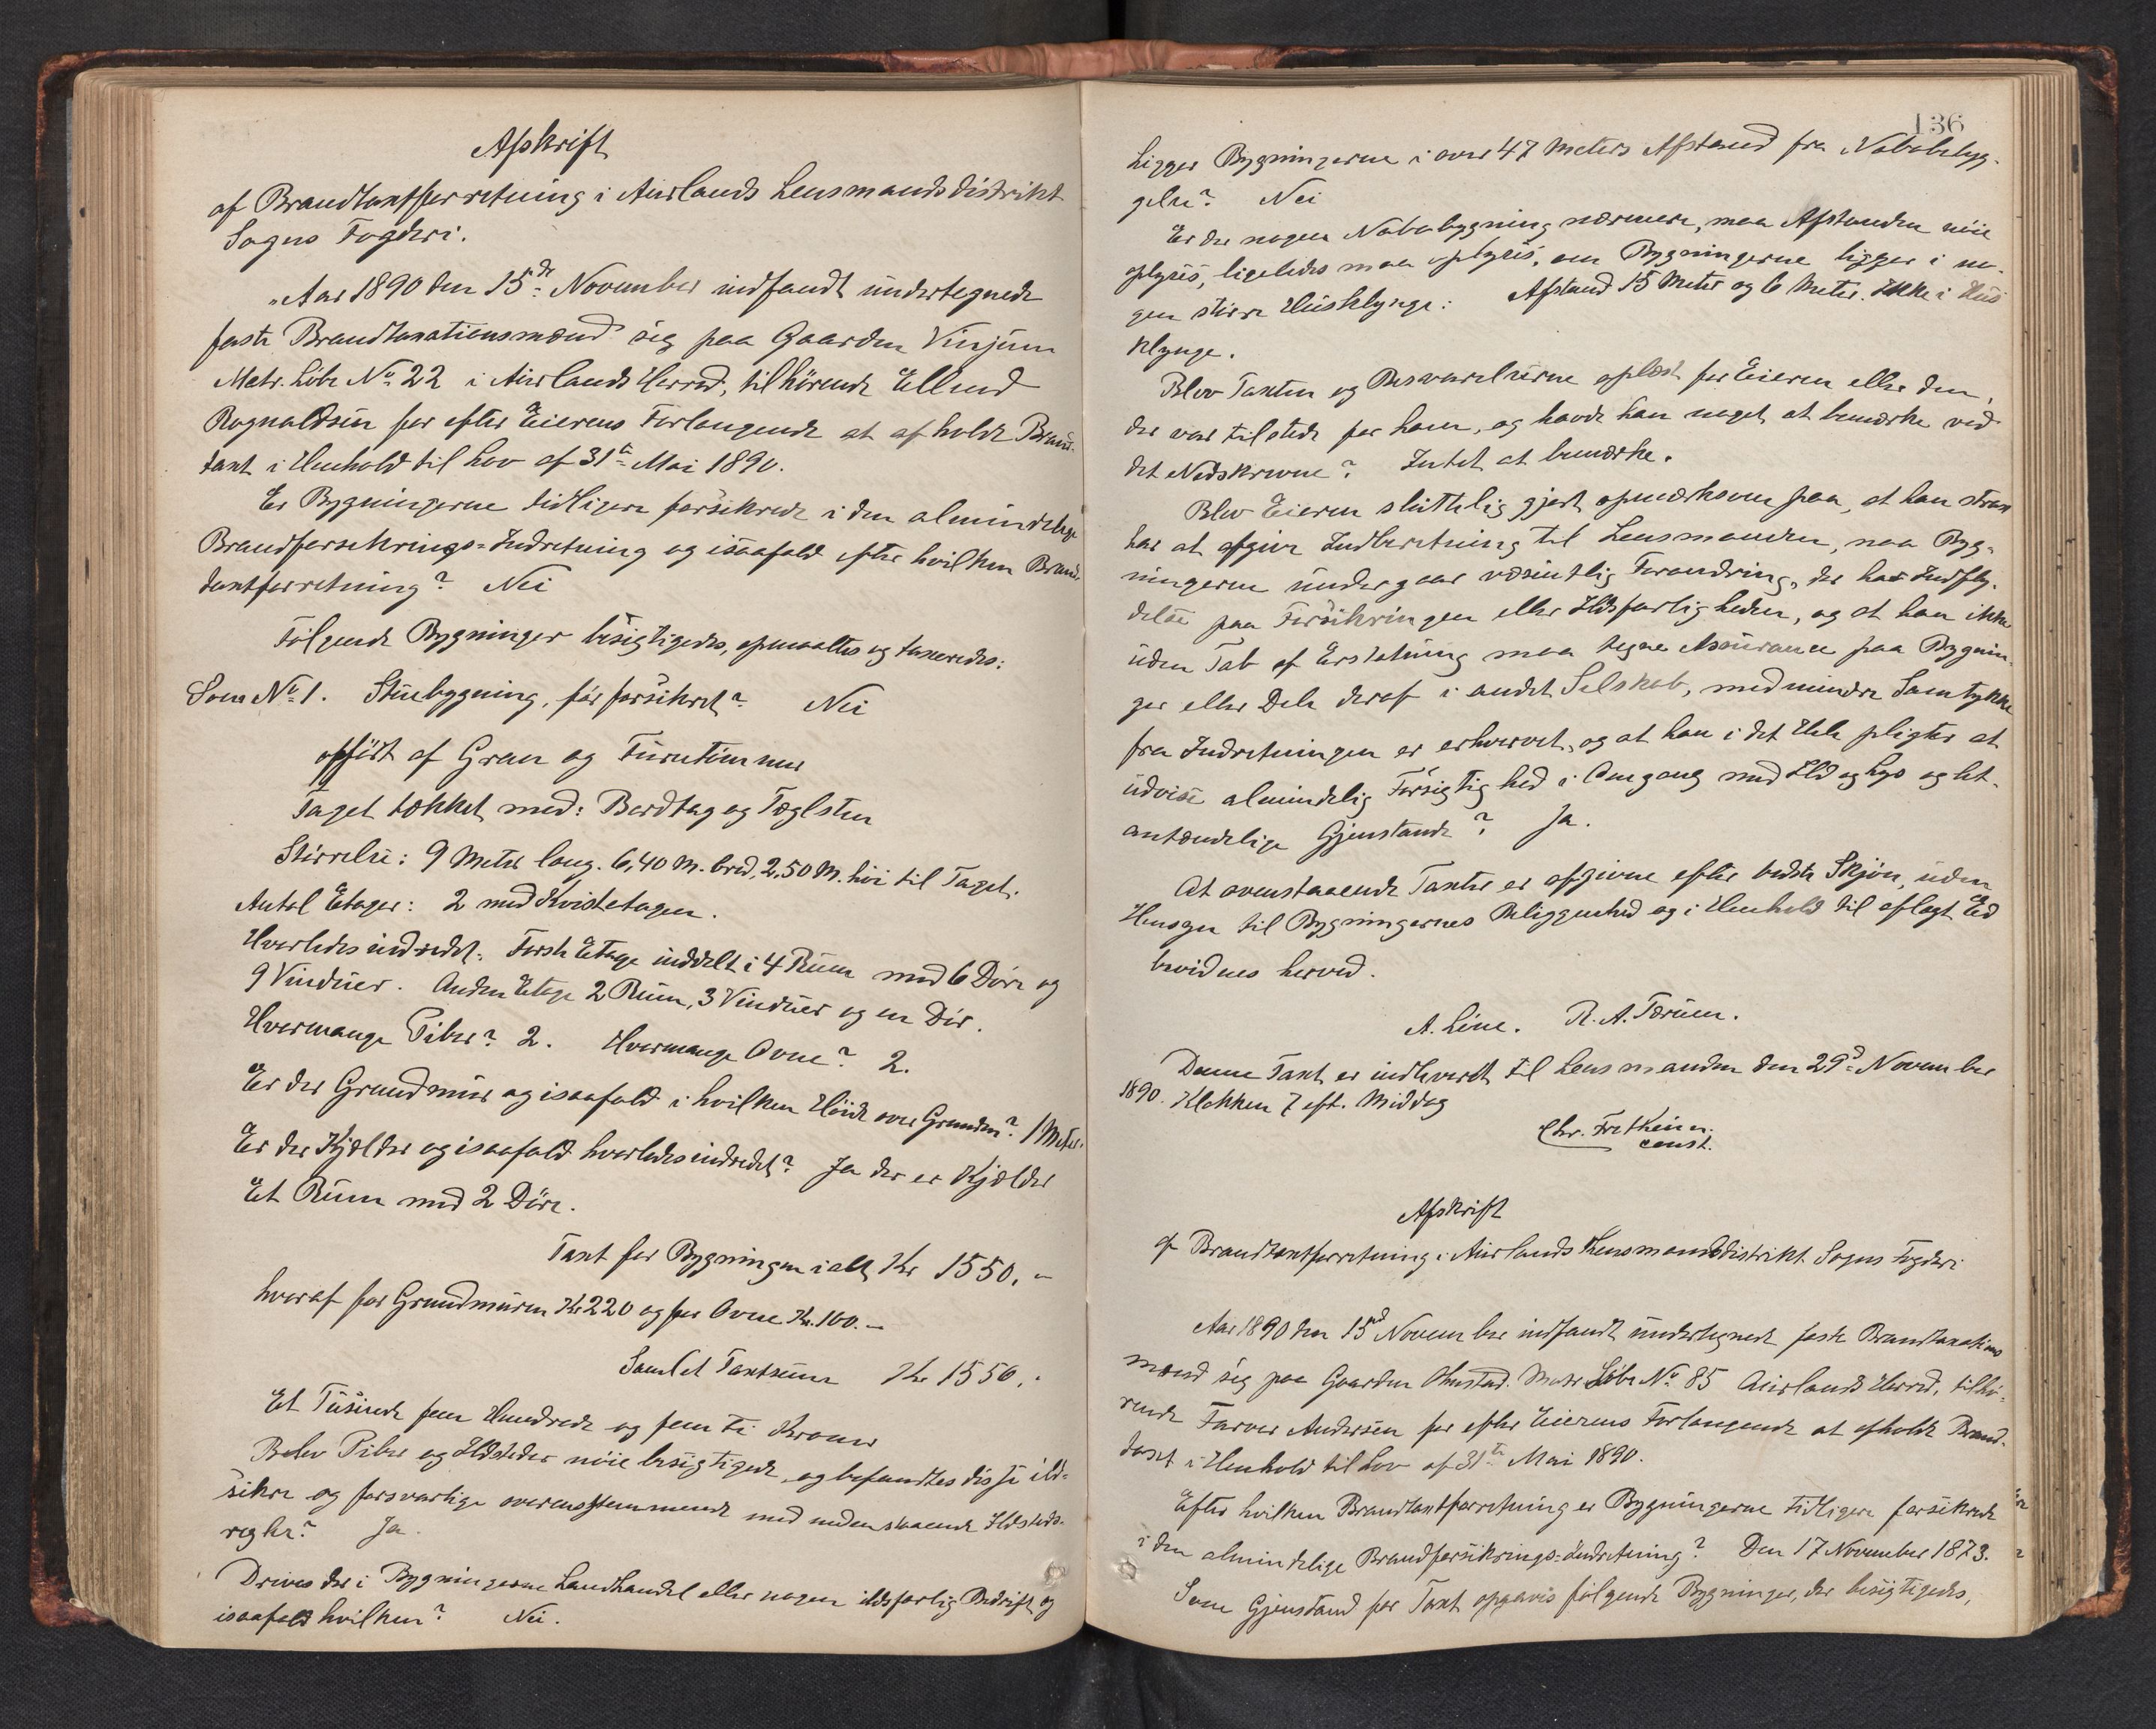 Afskrift
af Brandtaxtforretning i Aurlands Lensmandsdistrikt
Sogns Fogderi.
Aar 1890 den 15de November indfandt undertegnede
faste Brandtaxationsmænd sig paa Gaarden Vinjum
Matr. Löbe No 22 i Aurlands Herred, tilhörende Ellend
Rognaldsen for efter Eierens Forlangende at afholde Brand-
taxt i Henhold til Lov af 31te Mai 1890.
Er Bygningerne tidligere forsikrede i den almindelige
Brandforsikrings-Indretning og isaafald efter hvilken Brand-
taxtforretning? Nei
Følgende Bygninger besigtigedes, opmaaltes og taxeredes:
Som No 1. Stuebygning, för forsikret? Nei
opfört af Gran og Furutimmer
Taget tækket med: Bordtag og Tæglsten
Störrelse: 9 Meter lang. 6,40 M. bred, 2,50 M. höi til Taget.
Antal Etager: 2 med Kvistetagen.
Hvorledes indredet: Første Etage inddelt i 4 Rum med 6 Döre og
9 Vinduer. Anden Etage 2 Rum, 3 Vinduer og en Dör.
Hvormange Piber? 2. Hvormange Ovne? 2.
Er der Grundmur og isaafald i hvilken Höide over Grunden? 1 Meter.
Er der Kjælder og isaafald hvorledes indredet? Ja der er Kjælder
Et Rum med 2 Döre.
Taxt for Bygningen ialt Kr 1550.-
hvoraf for Grundmuren Kr 220 og for Ovne Kr. 100.-
Samlet Taxtsum Kr 1550.-
Et Tusinde fem Hundrede og femti Kroner
Blev Piber og Ildsteder nöie besigtigede, og befandtes disse ild-
sikre og forsvarlige overensstemmende med nedenstaaende Ildsteds-
regler? Ja.
Drives der i Bygningerne Landhandel eller nogen ildsfarlig Bedrift og
isaafald hvilken? Nei.
136
Ligger Bygningerne i over 47 Meters Afstand fra Nabobebyg-
gelse? Nei
Er der nogen Nabobygning nærmere, maa Afstanden nöie
oplyses, ligeledes maa oplyses, om Bygningerne ligger i no-
gen större Husklynge: Afstand 15 Meter og 6 Meter. Ikke i Hus
klynge.
Blev Taxten og Besvarelserne oplæst for Eieren eller den,
der var tilstede for ham, og havde han noget at bemærke ved
det Nedskrevne? Intet at bemærke.
Blev Eieren sluttelig gjort opmærksom paa, at han strax
har at afgive Indberetning til Lensmanden, naar Byg-
ningerne undergaar væsentlig Forandring, der har Indfly-
delse paa Forsikringen eller Ildsfarligheden, og at han ikke
uden Tab af Erstatning maa tegne Assurance paa Bygnin-
ger eller Dele deraf i andet Selskab, medmindre Samtykke
fra Indretningen er erhvervet, og at han i det Hele pligter at
udvise almindelig Forsigtighed i Omgang med Ild og Lys og let-
antændelige Gjenstande? Ja.
At ovenstaaende Taxter er afgivne efter bedste Skjön, uden
Hensyn til Bygningernes Beliggenhed og i Henhold til aflagt Ed
bevidnes herved.
A. Line. R. A. Tærum.
Denne Taxt er indleveret til Lensmanden den 29d November
1890. Klokken 7 eft. Middag
Chr. Fretheim
const.
Afskrift
af Brandtaxtforretning i Aurlands Lensmandsdistrikt Sogns Fogderi
Aar 1890 den 15d November indfandt undertegnede faste Brandtaxations
mænd sig paa Gaarden Ohnstad. Matr Löbe No 85 Aurlands Herred, tilhö-
rende Farver Andersen for efter Eierens Forlangende at afholde Brand-
taxt i Henhold til Lov af 31te Mai 1890.
Efter hvilken Brandtaxtforretning er Bygningerne tidligere forsikrede
i den almindelige Brandforsikrings-Indretning? Den 17 November 1873.
Som Gjenstand for Taxt opgaves følgende Bygninger, der besigtigedes,